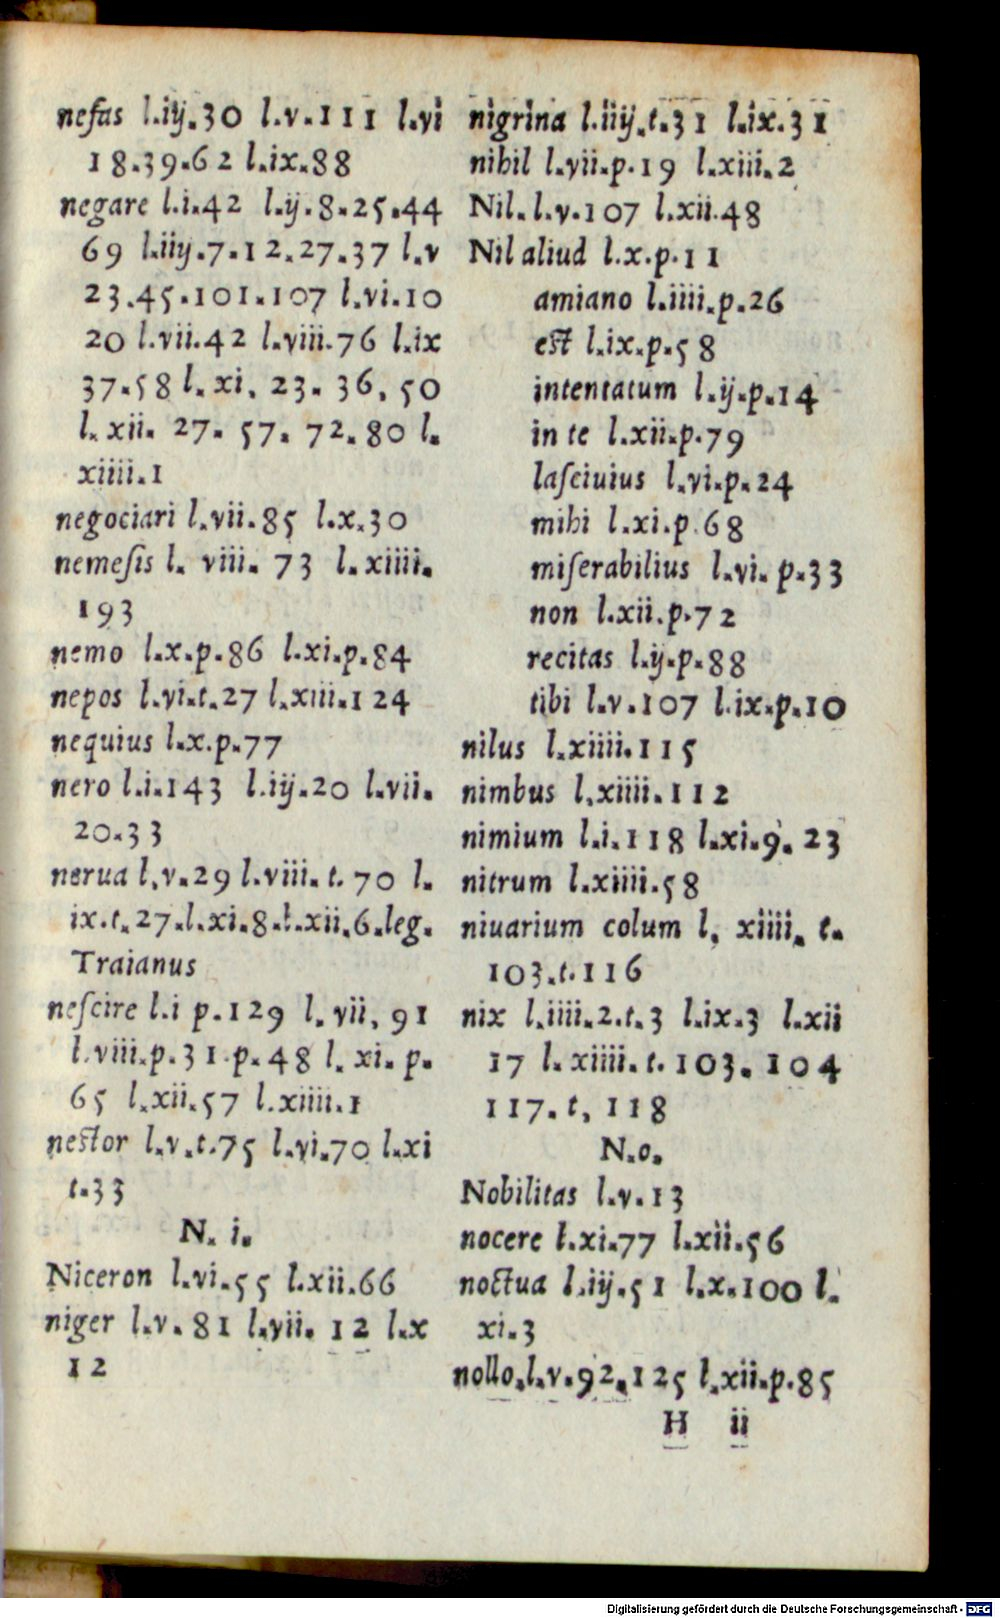 nefas l.iij.30 l.v.111 l.vi
18.39.62 l.ix.88
negare l.i.42 l.ij.8.25.44
69 l.iiij.7.12.27.37 l.v
23.45.101.107 l.vi.10
20 l.vii.42 l.viii.76 l.ix
37.58 l. xi, 23. 36, 50
l. xii. 27. 57. 72.80 l.
xiiii.1
negociari l.vii.85 l.x.30
nemeſis l. viii. 73 l.xiiii.
193
nemo l.x.p.86 l.xi.p.84
nepos l.vi.t.27 l.xiii.124
nequius l.x.p.77
nero l.i.143 l.iij.20 l.vii.
20.33
nerua l.v.29 l.viii.t. 70 l.
ix.t.27.l.xi.8.l.xii.6.leg.
Traianus
neſcire l.i p.129 l. vii, 91
l.viii.p.31.p.48 l. xi. p.
65 l.xii.57 l.xiiii.1
nestor l.v.t.75 l.vi.70 l.xi
t.33
N. i.
Niceron l.vi.55 l.xii.66
niger l.v.81 l.vii. 12 l.x
12
nigrina l.iiij.t.31 l.ix.31
nihil l.vii.p.19 l.xiii.2
Nil.l.v.107 l.xii.48
Nil aliud l.x.p.11
amiano l.iiii.p.26
est l.ix.p.58
intentatum l.ij.p.14
in te l.xii.p.79
laſciuius l.vi.p.24
mihi l.xi.p.68
miſerabilius l.vi. p.33
non l.xii.p.72
recitas l.ij.p.88
tibi l.v.107 l.ix.p.10
nilus l.xiiii.115
nimbus l.xiiii.112
nimium l.i.118 l.xi.9. 23
nitrum l.xiiii.58
niuarium colum l, xiiii. t.
103.t.116
nix l.iiii.2.t.3 l.ix.3 l.xii
17 l. xiiii.t. 103. 104
117. t, 118
N.o.
Nobilitas l.v.13
nocere l.xi.77 l.xii.56
noctua l.iij.51 l.x.100 l.
xi.3
nollo.l.v.92.125 l.xii.p.85
H ii
Digitalisierung gefördert durch die Deutsche Forschungsgemeinschaft - DFG